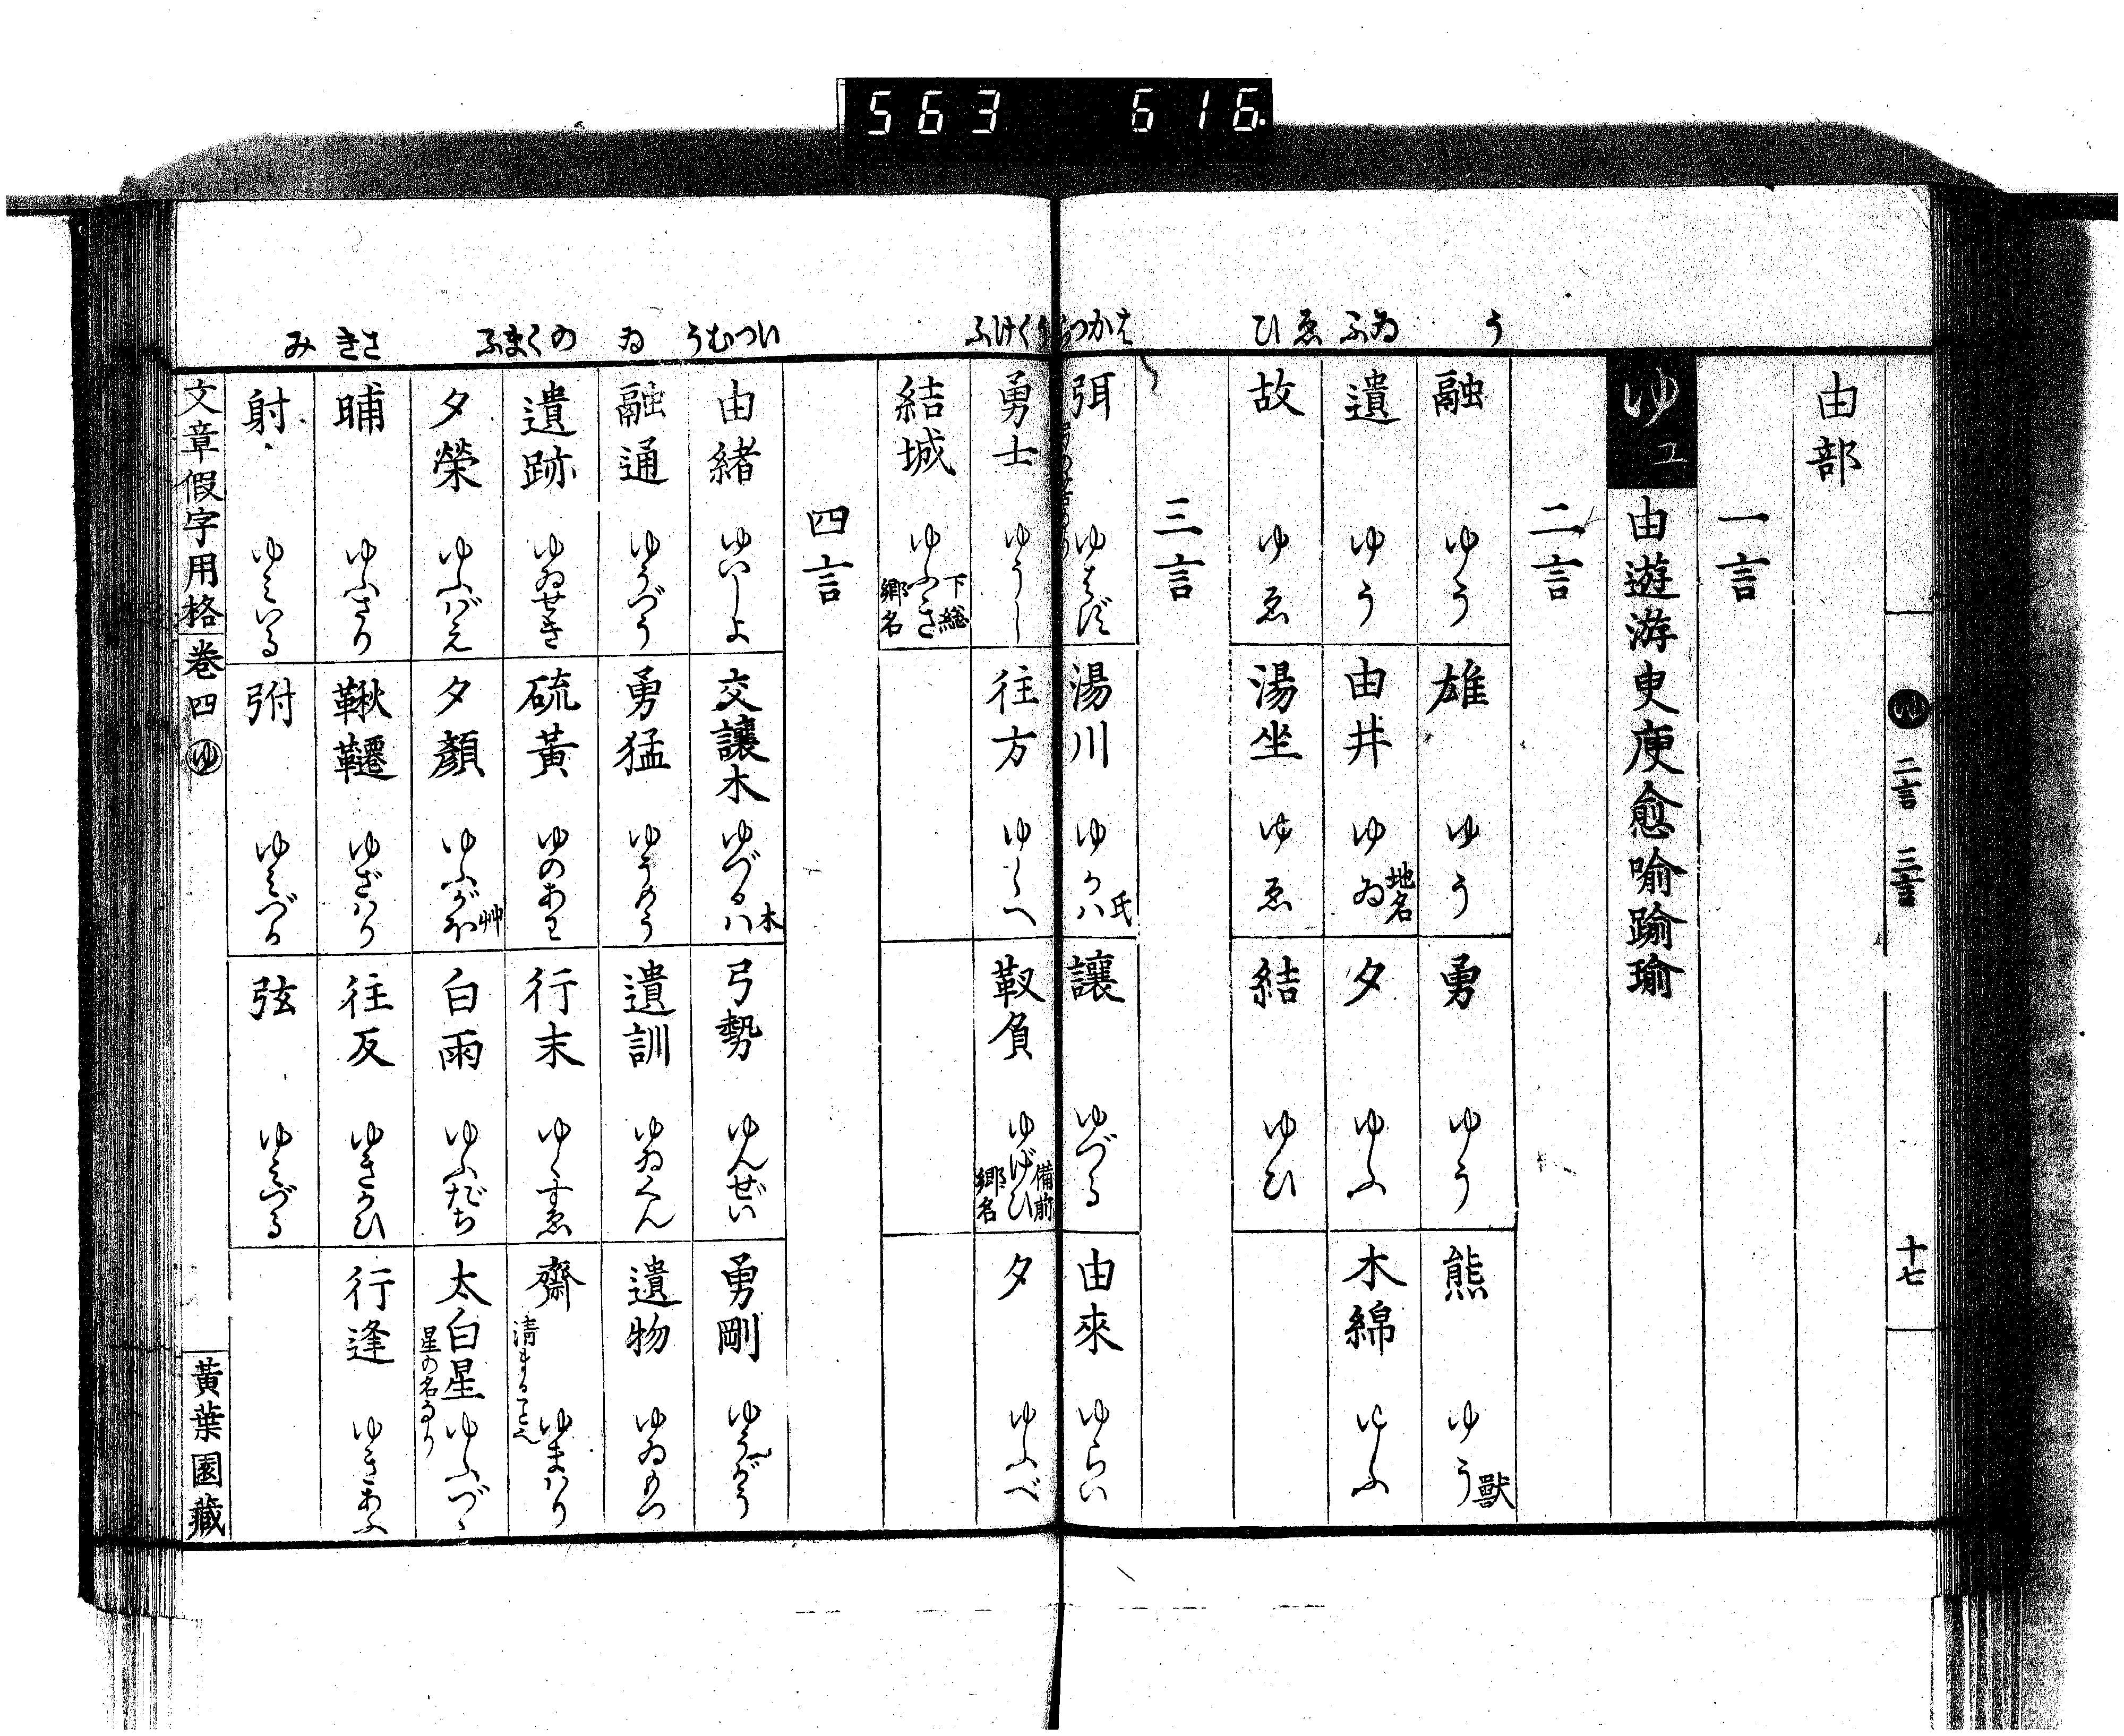 563 616.
ゆ 二言 三言 十七
う
ふゐ
ひゑ
はかつ
くけふ
いつむう
ゐ
のくまふ
さき
み
由部
一言
ゆユ 由遊游臾庾愈喩踰瑜
二言
融 ゆう 雄 ゆう 勇 ゆう 熊 ゆう 獸
遺 ゆう 由井 ゆゐ 地名 夕 ゆふ 木綿 ゆふ
故 ゆゑ 湯坐 ゆゑ 結 ゆひ
三言
弭 ゆはず 湯川 ゆかハ 氏 讓 ゆづる 由來 ゆらい
勇士 ゆうし 往方 ゆくへ 靫負 ゆげひ 備前郷名 夕 ゆふべ
結城 ゆふき 下総郷名
四言
由緒 ゆいしよ 交讓木 ゆづるハ 木 弓勢 ゆんぜい 勇剛 ゆうがう
融通 ゆうづう 勇猛 ゆうまう 遺訓 ゆゐくん 遺物 ゆゐもつ
遺跡 ゆゐせき 硫黃 ゆのあわ 行末 ゆくすゑ 齋 清まること也 ゆまハり
夕榮 ゆふばえ 夕顏 ゆふがほ 艸 白雨 ゆふだち 太白星 星の名なり ゆふづゝ
晡 ゆふさり 鞦韆 ゆさハり 往反 ゆきかひ 行逢 ゆきあふ
射 ゆみいる 弣 ゆみづか 弦 ゆみづる
文章假字用格 卷四 ゆ 黃葉園藏